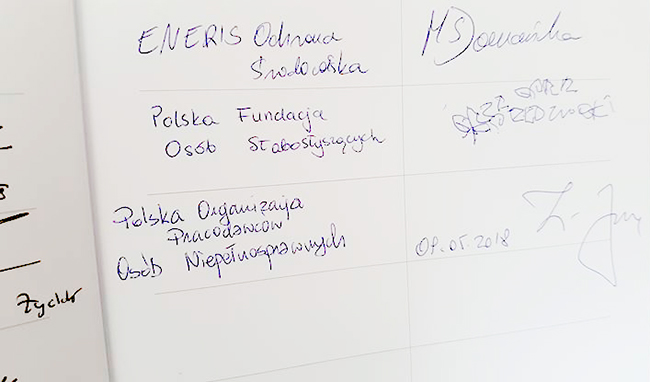 ENERIS Ochrona
Środowiska
Polska Fundacja
Osób Słabosłyszących
Polska Organizacja
Pracodawców
Osób Niepełnosprawnych
09.05.2018